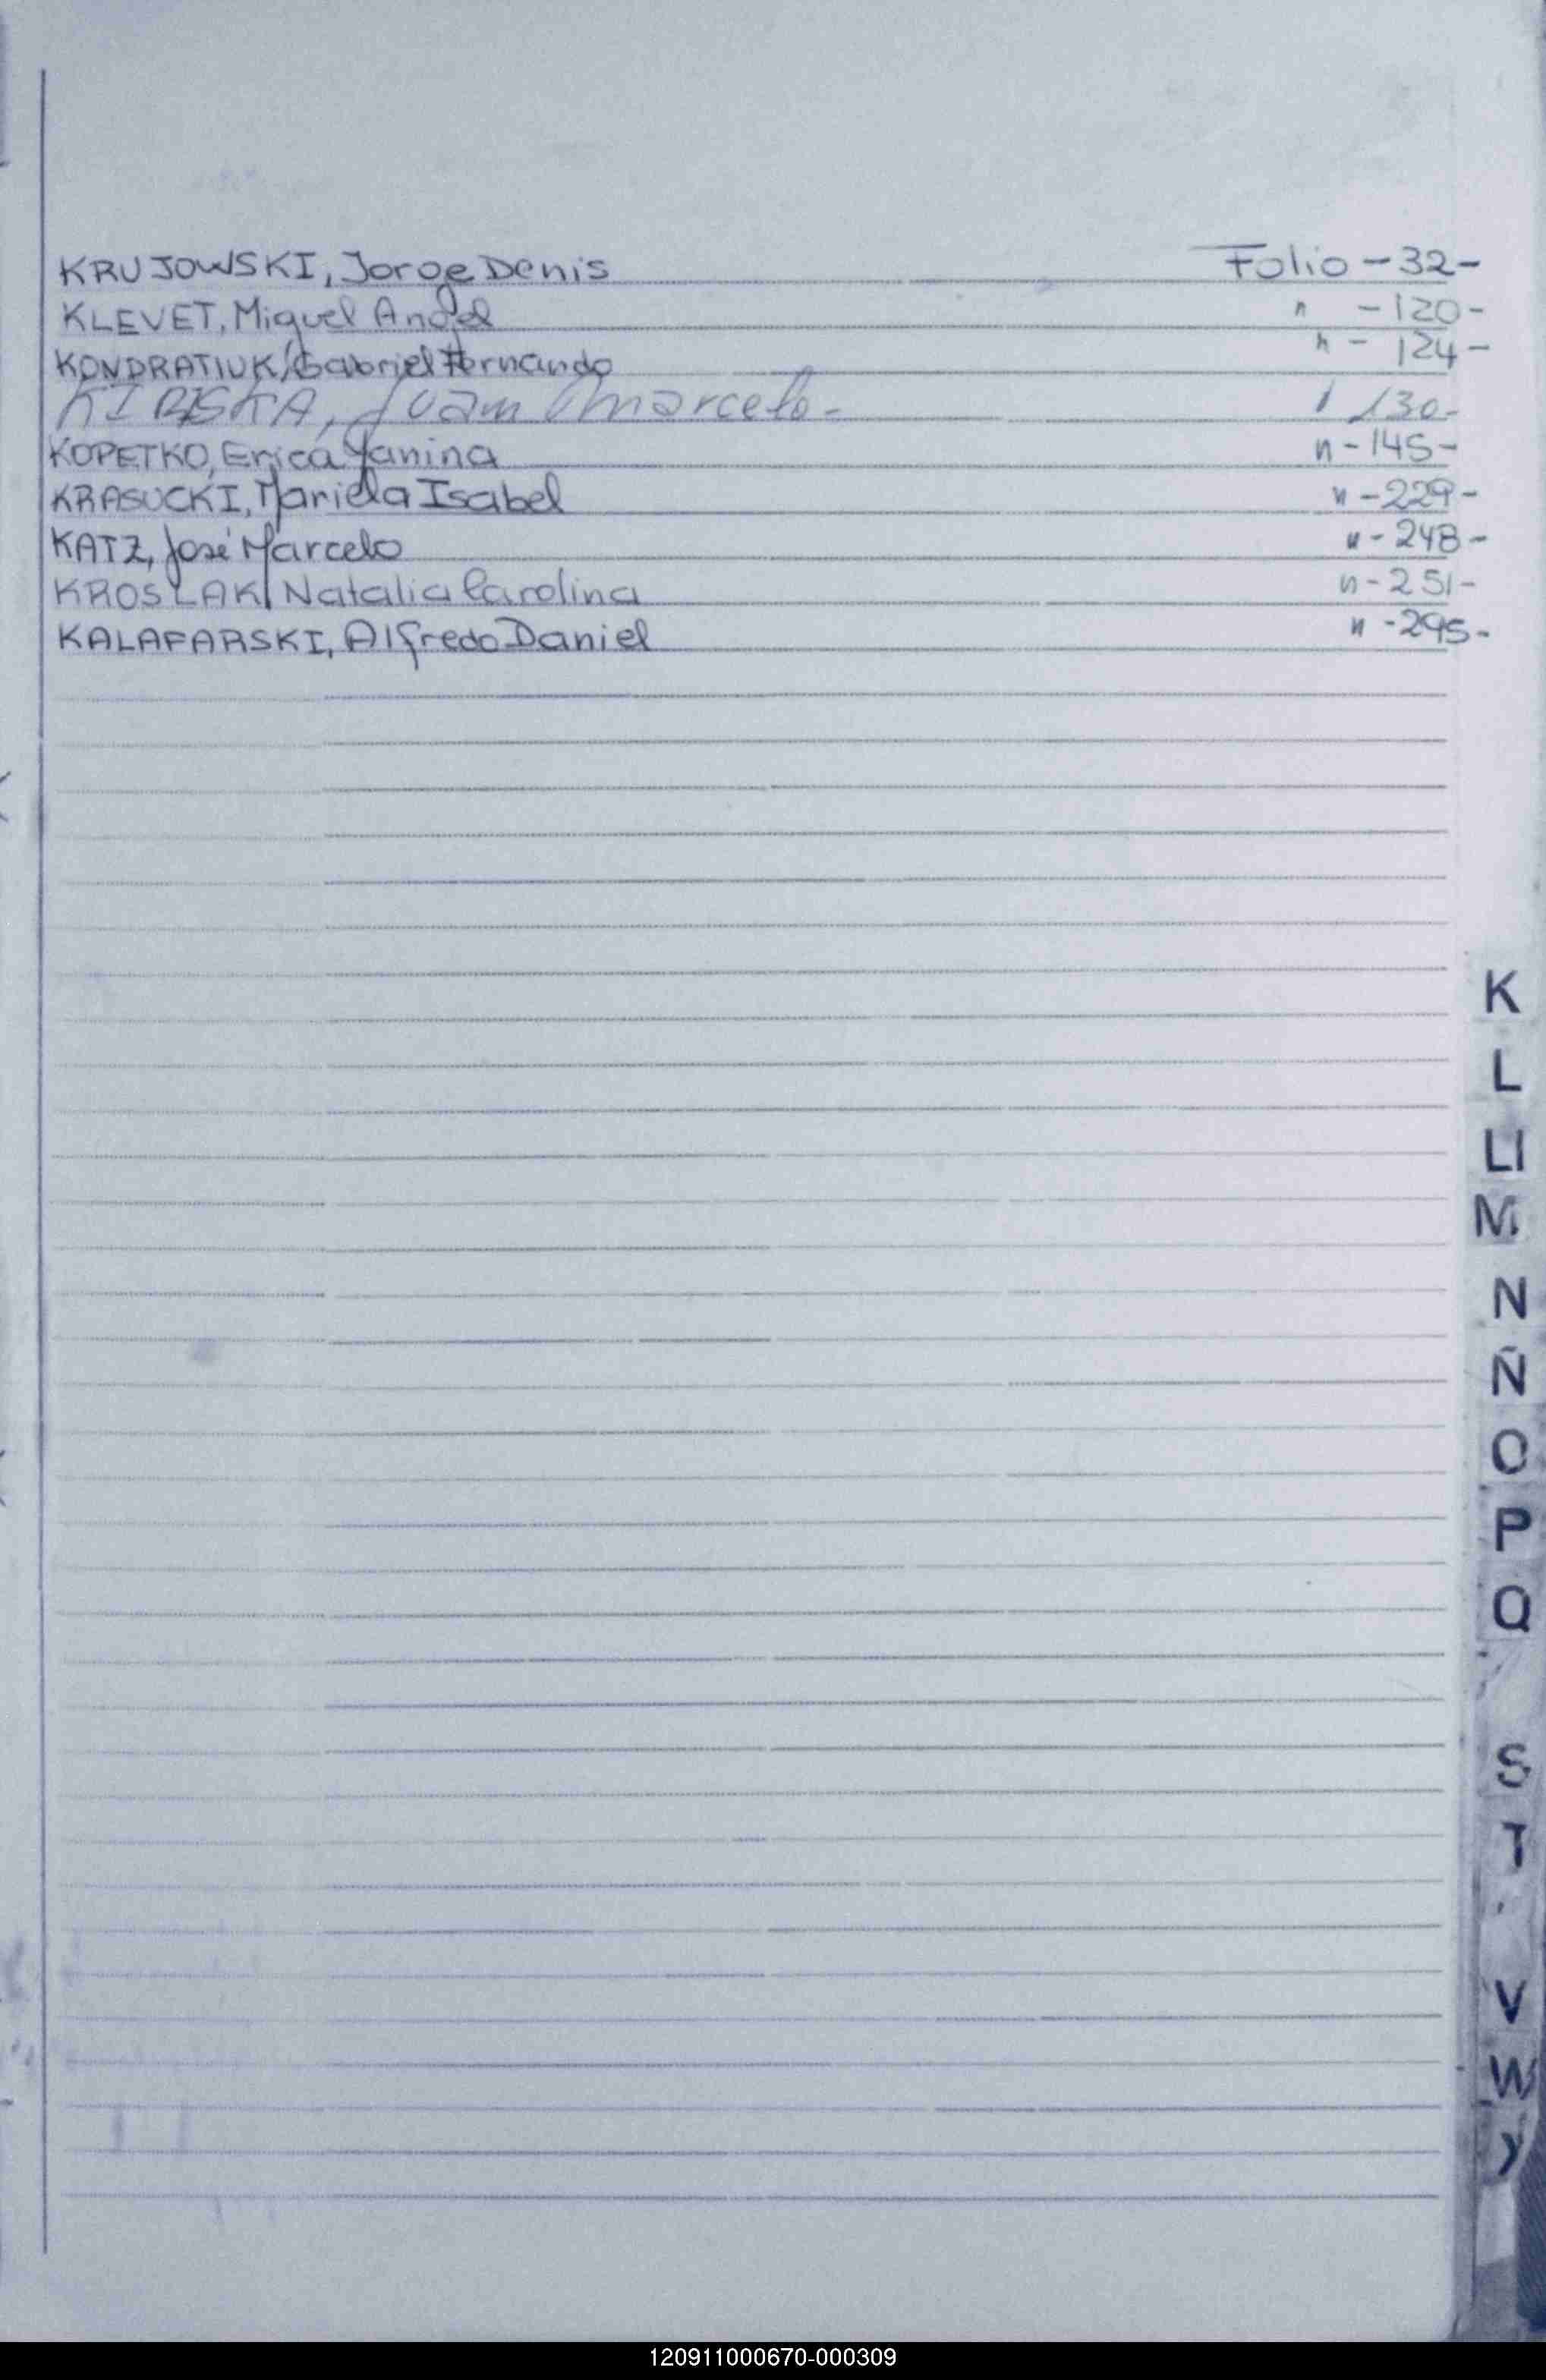 KRUJOWSKI, Jorge Denis Folio - 32 -
KLEVET, Miguel Angel " - 120 -
KONDRATIUK, Gabriel Fernando " - 124 -
Juan Marcelo - " 130 -
KOPETKO, Erica Yanina " - 145 -
KRASUCKI, Mariela Isabel " - 229 -
KATZ, José Marcelo " - 248 -
KROSLAK, Natalia Carolina " - 251 -
KALAFARSKI, Alfredo Daniel " - 295 -
K
L
Ll
M
N
Ñ
O
P
Q
S
T
V
W
Y
120911000670-000309